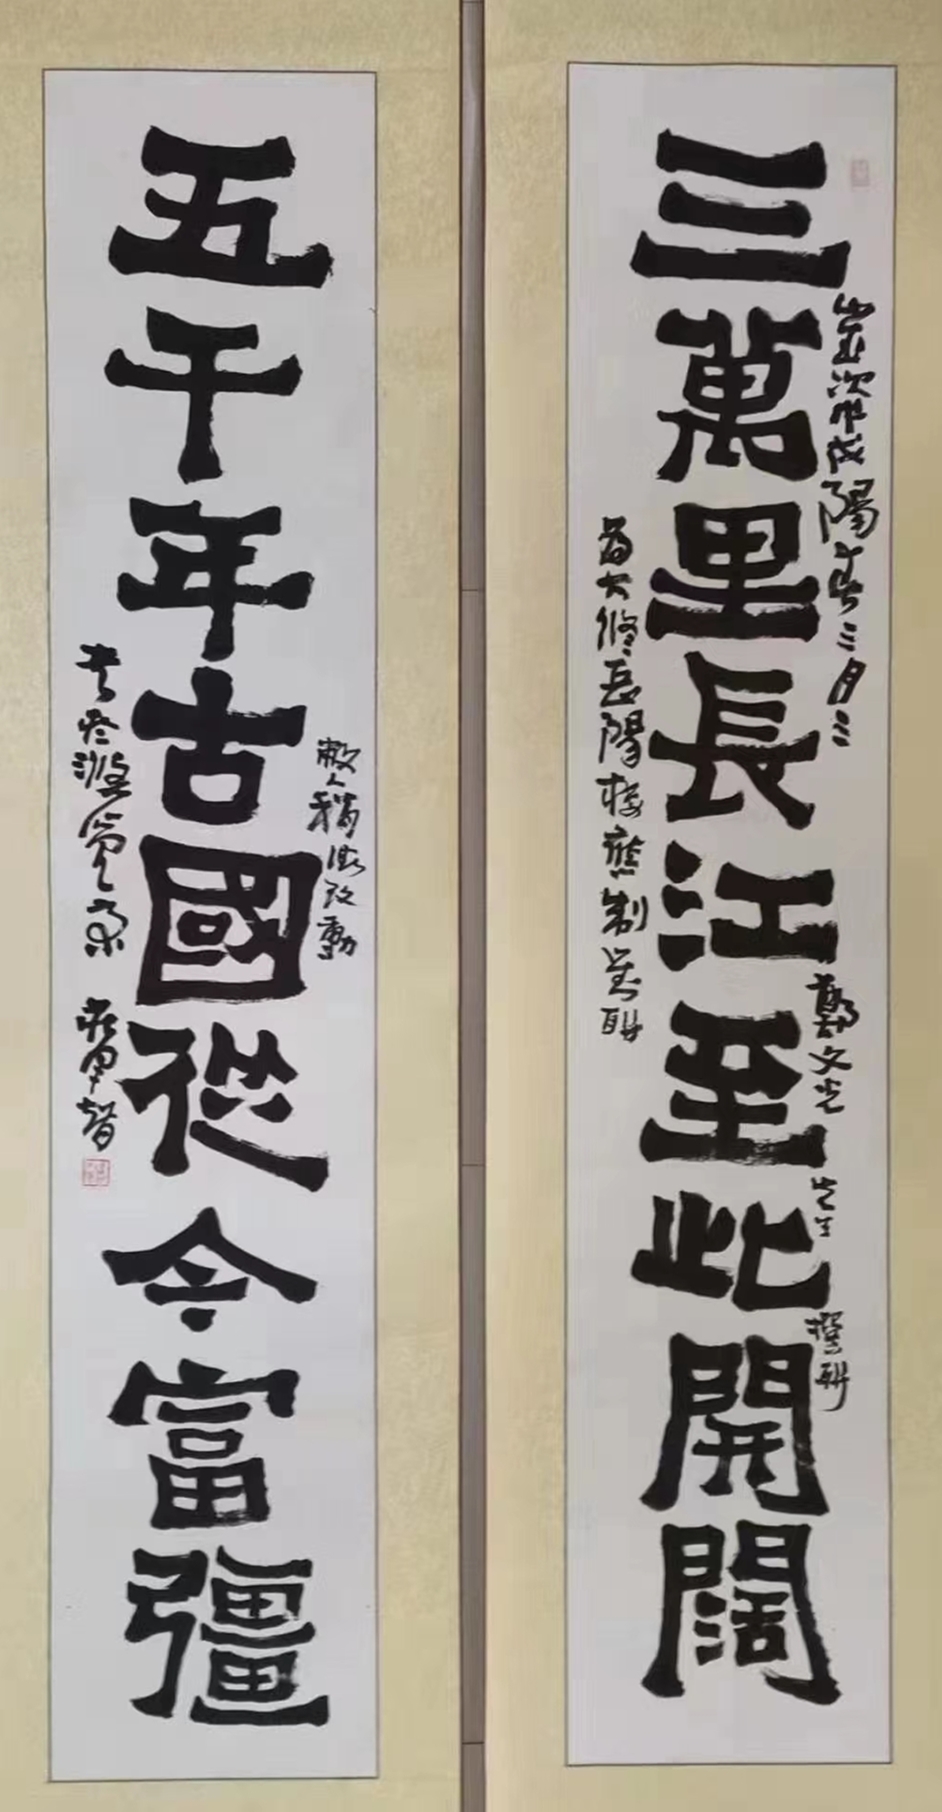 三萬里長江至此開闊
歲次戊戌陽春三月三
鄭文光先生撰聯
為大修岳陽樓應制 聯
五千年古國從今富彊
敝人稍微改動
書於